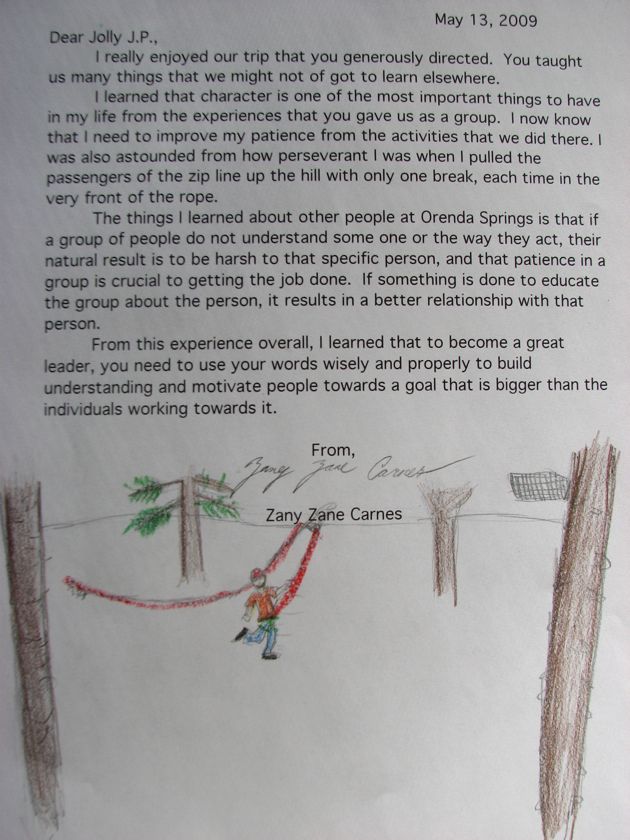 May 13, 2009
Dear Jolly J.P.,
I really enjoyed our trip that you generously directed.  You taught
us many things that we might not of got to learn elsewhere.
I learned that character is one of the most important things to have
in my life from the experiences that you gave us as a group.  I now know
that I need to improve my patience from the activities that we did there. I
was also astounded from how perseverant I was when I pulled the
passengers of the zip line up the hill with only one break, each time in the
very front of the rope.
The things I learned about other people at Orenda Springs is that if
a group of people do not understand some one or the way they act, their
natural result is to be harsh to that specific person, and that patience in a
group is crucial to getting the job done.  If something is done to educate
the group about the person, it results in a better relationship with that
person.
From this experience overall, I learned that to become a great
leader, you need to use your words wisely and properly to build
understanding and motivate people towards a goal that is bigger than the
individuals working towards it.
From,
Zany Zane Carnes
Zany Zane Carnes